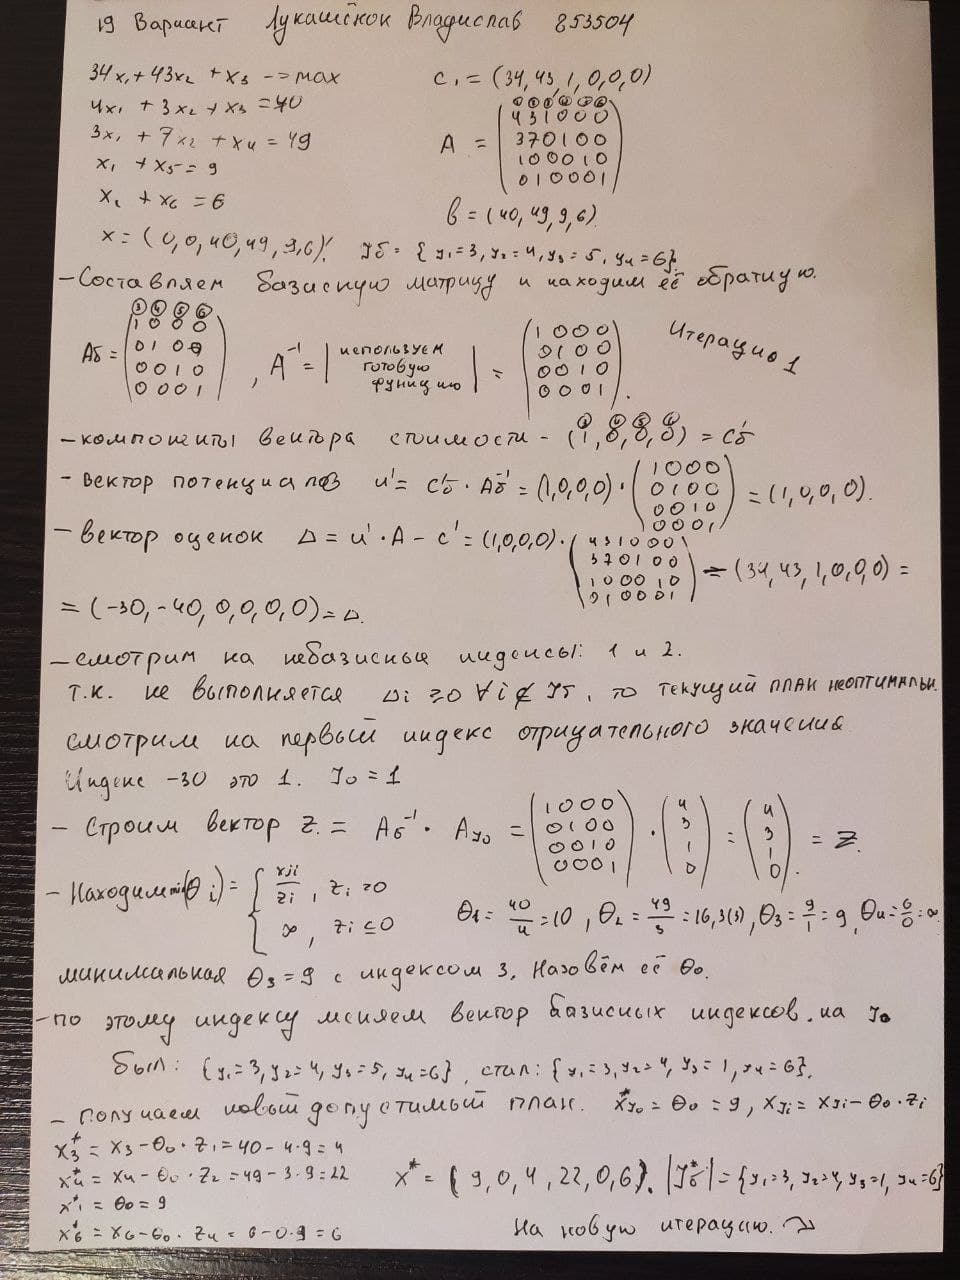 19 Вариант Лукашёнок Владислав 853504
34x₁ + 43x₂ + x₃ --> max
c₁ = (34, 43, 1, 0, 0, 0)
4x₁ + 3x₂ + x₃ = 40
3x₁ + 7x₂ + x₄ = 49
x₁ + x₅ = 9
x₂ + x₆ = 6
① ② ③ ④ ⑤ ⑥
A = (4 3 1 0 0 0
3 7 0 1 0 0
1 0 0 0 1 0
0 1 0 0 0 1)
b = (40, 49, 9, 6)
x = (0, 0, 40, 49, 9, 6)! Jб = {y₁=3, y₂=4, y₃=5, y₄=6}.
- Составляем базисную матрицу и находим её обратную.
Итерация 1
③ ④ ⑤ ⑥
Aб = (1 0 0 0
0 1 0 0
0 0 1 0
0 0 0 1)
, A⁻¹ = | используем
готовую
функцию | = (1 0 0 0
0 1 0 0
0 0 1 0
0 0 0 1).
- компоненты вектора стоимости - (1, 0, 0, 0) = c'б
- вектор потенциалов u' = c'б · Aб⁻¹ = (1,0,0,0) · (1 0 0 0
0 1 0 0
0 0 1 0
0 0 0 1) = (1, 0, 0, 0).
- вектор оценок Δ = u' · A - c' = (1,0,0,0) · (4 3 1 0 0 0
3 7 0 1 0 0
1 0 0 0 1 0
0 1 0 0 0 1) - (34, 43, 1, 0, 0, 0) =
= (-30, -40, 0, 0, 0, 0) = Δ.
- смотрим на небазисные индексы: 1 и 2.
т.к. не выполняется Δi ≥ 0 ∀ i ∉ Jб, то текущий план неоптимальн.
смотрим на первый индекс отрицательного значения
Индекс -30 это 1. J₀ = 1
- Строим вектор Z. = Aб⁻¹ · AJ₀ = (1 0 0 0
0 1 0 0
0 0 1 0
0 0 0 1) · (4
3
1
0) = (4
3
1
0). = Z.
- Находим min(θi) = { xji/zi, zi > 0
∞, zi ≤ 0
θ1 = 40/4 = 10, θ₂ = 49/3 = 16,3(3), θ₃ = 9/1 = 9, θ4 = 6/0 = ∞
минимальная θ₃ = 9 с индексом 3. Назовём её θ₀.
- по этому индексу меняем вектор базисных индексов. на J₀
был: {y₁=3, y₂=4, y₃=5, y₄=6}, стал: {y₁=3, y₂=4, y₃=1, y₄=6}.
- Получаем новый допустимый план. x*J₀ = θ₀ = 9, xJi = xJi - θ₀ · zi
x₃* = x₃ - θ₀ · z₁ = 40 - 4·9 = 4
x₄* = x₄ - θ₀ · z₂ = 49 - 3·9 = 22
x₁* = θ₀ = 9
x₆* = x₆ - θ₀ · z₄ = 6 - 0·9 = 6
x* = (9, 0, 4, 22, 0, 6). |Jб*| = {y₁=3, y₂=4, y₃=1, y₄=6}
На новую итерацию.